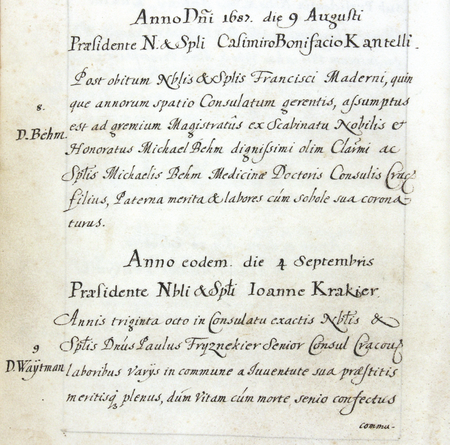 Anno Dñi 1687. die 9 Augusti
Præsidente N. & Spli Casimiro Bonifacio Kantelli.
Post obitum Nblis & Splis Francisci Maderni, quin
que annorum spatio Consulatum gerentis, assumptus
8.
D. Behm.
est ad gremium Magistratûs ex Scabinatu Nobilis et
Honoratus Michael Behm dignissimi olim Clarmi ac
Spłis Michaelis Behm Medicinæ Doctoris Consulis Crac
filius, Paterna merita & labores cúm sobole sua corona
turus.
Anno eodem. die 4 Septembris
Præsidente Nbli & Spłi Ioanne Krakier
Annis triginta octo in Consulatu exactis Nbłis &
9
D. Waÿtman.
Spłis Dnus Paulus Fryznekier Senior Consul Cracou
laboribus varijs in commune a Iuventute sua præstitis
meritisq plenus, dúm vitam cúm morte senio confectus
commu-